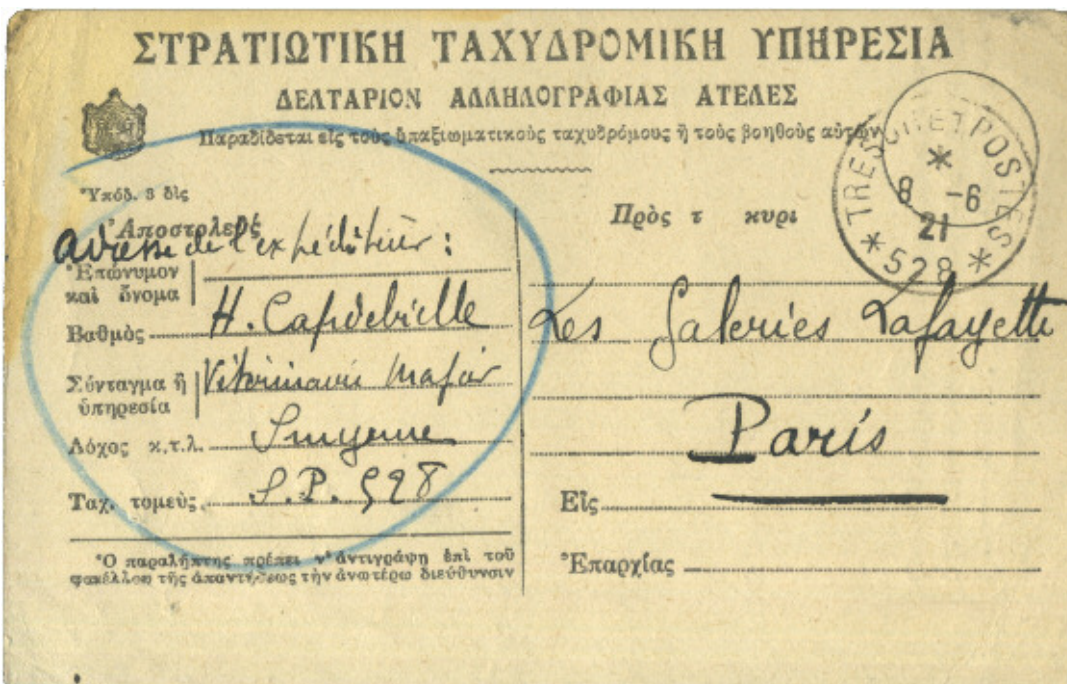 ΣΤΡΑΤΙΩΤΙΚΗ ΤΑΧΥΔΡΟΜΙΚΗ ΥΠΗΡΕΣΙΑ
ΔΕΛΤΑΡΙΟΝ ΑΛΛΗΛΟΓΡΑΦΙΑΣ ΑΤΕΛΕΣ
Παραδίδεται εἰς τοὺς ὑπαξιωματικοὺς ταχυδρόμους ἢ τοὺς βοηθοὺς αὐτῶν
TRESOR ET POSTES
8 -6
21
* 528 *
Ὑπόδ. 3 δὶς
Ἀποστολεὺς
adresse de l'expéditeur :
Ἐπώνυμον
καὶ ὄνομα
Βαθμὸς H. Capdebielle
Σύνταγμα ἢ
ὑπηρεσία Vétérinaire Major
Λόχος κ.τ.λ. Smyrne
Ταχ. τομεὺς S.P. 528
Ὁ παραλήπτης πρέπει ν' ἀντιγράψῃ ἐπὶ τοῦ
φακέλλου τῆς ἀπαντήσεως τὴν ἀνωτέρω διεύθυνσιν
Πρὸς τ κυρι
Les Galeries Lafayette
Paris
Εἰς
Ἐπαρχίας